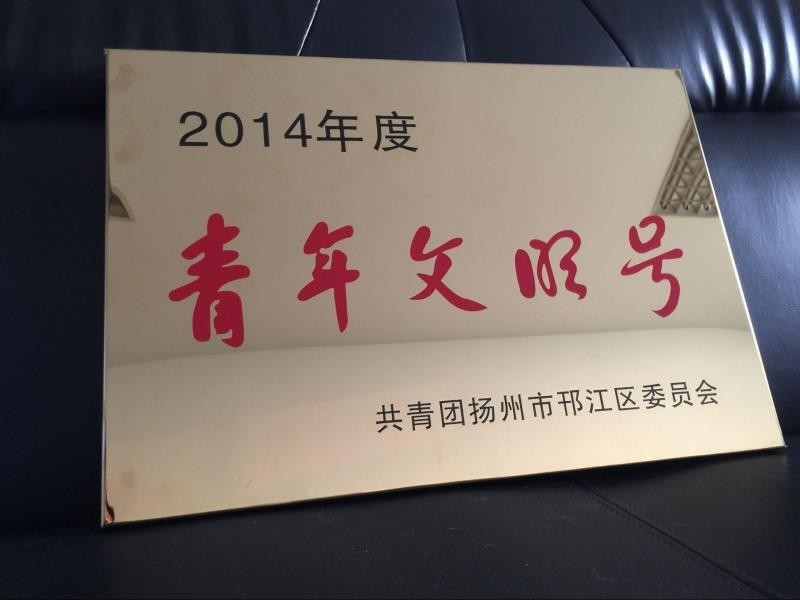 2014年度
青年文明号
共青团扬州市邗江区委员会